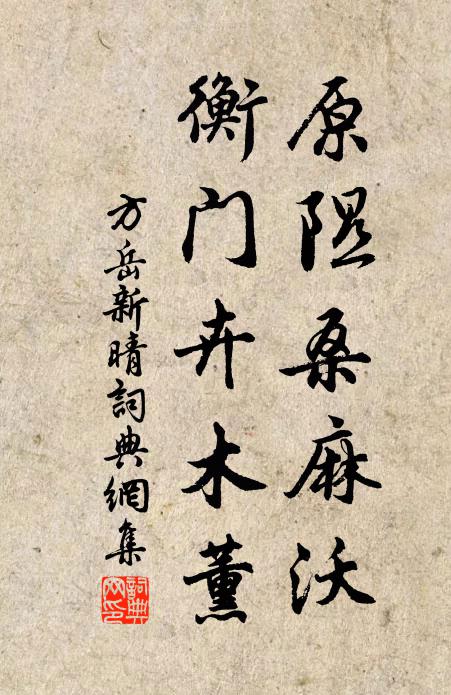 原隰桑麻沃
衡门卉木薰
方岳新晴詞典網集
詞典